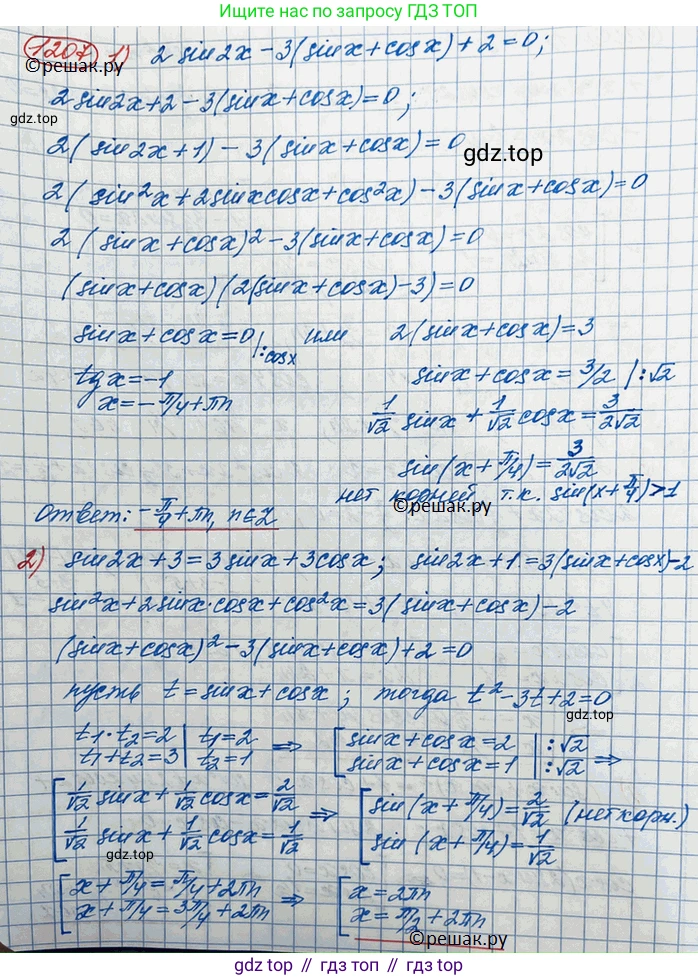 Ищите нас по запросу ГДЗ ТОП
1207 1) 2 sin2x - 3(sinx + cosx) + 2 = 0;
©решак.ру
2 sin2x + 2 - 3(sinx + cosx) = 0;
gdz.top
2(sin2x + 1) - 3(sinx + cosx) = 0
gdz.top
2(sin²x + 2sinxcosx + cos²x) - 3(sinx + cosx) = 0
2(sinx + cosx)² - 3(sinx + cosx) = 0
(sinx + cosx)(2(sinx + cosx) - 3) = 0
sinx + cosx = 0 |:cosx или 2(sinx + cosx) = 3
tgx = -1 sinx + cosx = 3/2 | :√2
x = -π/4 + πn 1/√2 sinx + 1/√2 cosx = 3/2√2
sin(x + π/4) = 3/2√2
нет корней т.к. sin(x + π/4) > 1
Ответ: -π/4 + πn, n∈Z
©решак.ру
2) sin2x + 3 = 3sinx + 3cosx; sin2x + 1 = 3(sinx + cosx) - 2
sin²x + 2sinx·cosx + cos²x = 3(sinx + cosx) - 2
(sinx + cosx)² - 3(sinx + cosx) + 2 = 0
gdz.top
пусть t = sinx + cosx; тогда t² - 3t + 2 = 0
t₁·t₂ = 2 | t₁ = 2 ⇒ [ sinx + cosx = 2 | :√2
t₁ + t₂ = 3 | t₂ = 1 sinx + cosx = 1 | :√2 ⇒
[ 1/√2 sinx + 1/√2 cosx = 2/√2 ⇒ [ sin(x + π/4) = 2/√2 (нет корн.)
1/√2 sinx + 1/√2 cosx = 1/√2 sin(x + π/4) = 1/√2
gdz.top
[ x + π/4 = π/4 + 2πn ⇒ [ x = 2πn
x + π/4 = 3π/4 + 2πn x = π/2 + 2πn
©решак.ру
gdz.top // gdz.top // gdz.top // gdz.top